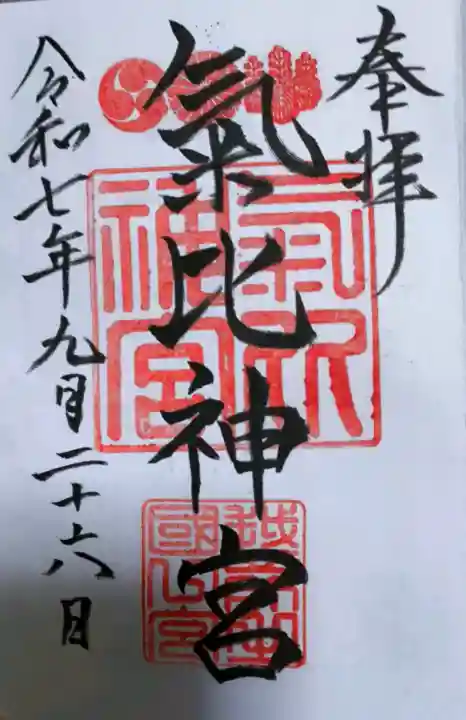 奉拝
氣比神宮
氣比神宮
令和七年九月二十六日